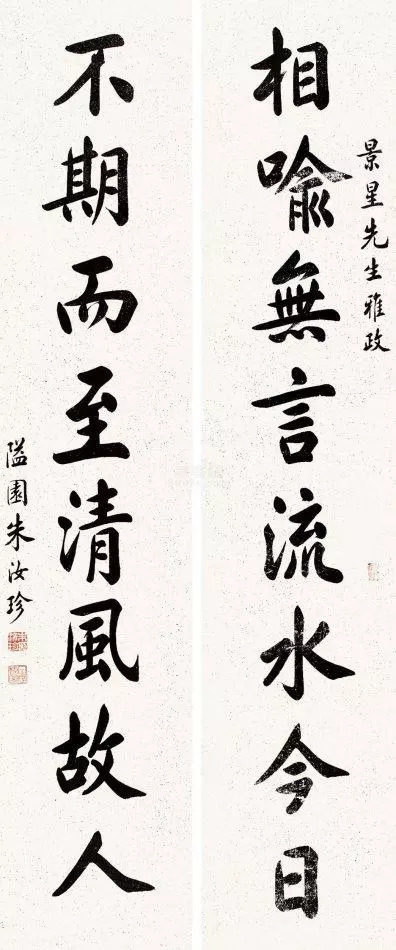 景星先生雅政
相喻無言流水今日
不期而至清風故人
隘園朱汝珍